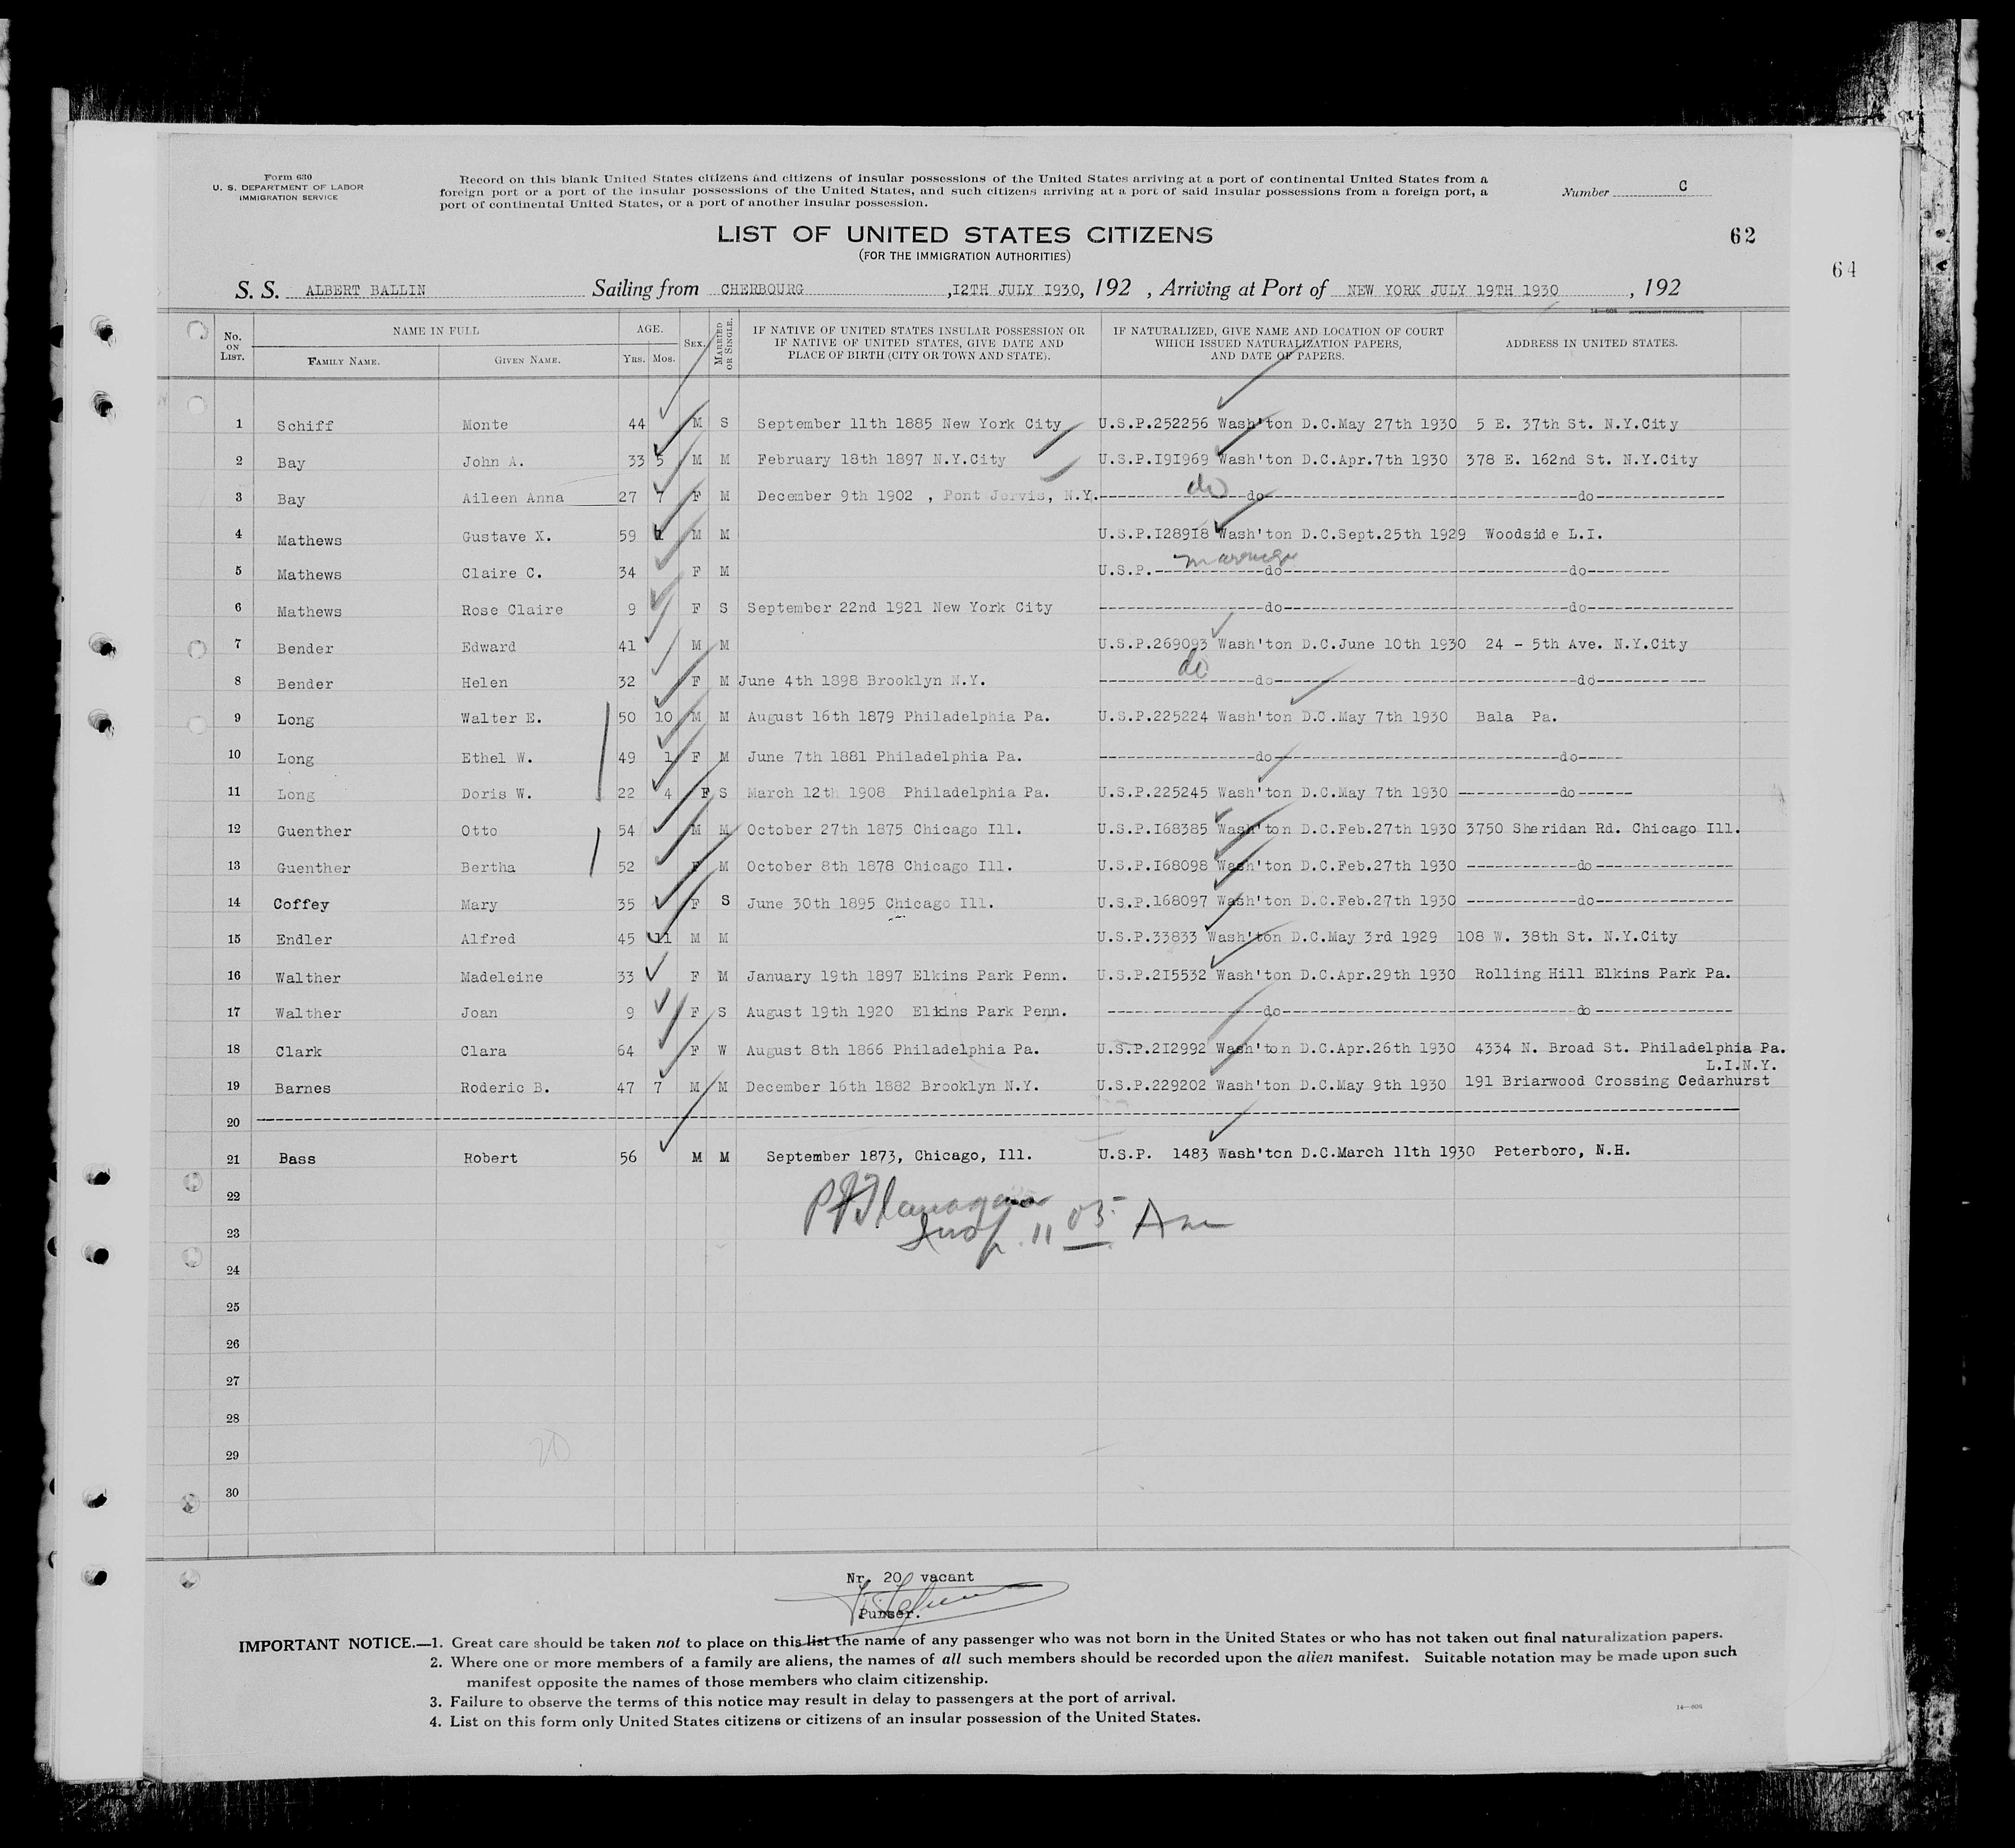 Form 630
U. S. DEPARTMENT OF LABOR
IMMIGRATION SERVICE
Record on this blank United States citizens and citizens of insular possessions of the United States arriving at a port of continental United States from a
foreign port or a port of the insular possessions of the United States, and such citizens arriving at a port of said insular possessions from a foreign port, a
port of continental United States, or a port of another insular possession.
Number C
LIST OF UNITED STATES CITIZENS
(FOR THE IMMIGRATION AUTHORITIES)
62
64
S. S. ALBERT BALLIN Sailing from CHERBOURG ,12TH JULY 1930, 192 , Arriving at Port of NEW YORK JULY 19TH 1930 , 192
No. ON LIST.
NAME IN FULL
FAMILY NAME.
GIVEN NAME.
AGE.
YRS. MOS.
SEX.
MARRIED OR SINGLE.
IF NATIVE OF UNITED STATES INSULAR POSSESSION OR
IF NATIVE OF UNITED STATES, GIVE DATE AND
PLACE OF BIRTH (CITY OR TOWN AND STATE).
IF NATURALIZED, GIVE NAME AND LOCATION OF COURT
WHICH ISSUED NATURALIZATION PAPERS,
AND DATE OF PAPERS.
ADDRESS IN UNITED STATES.
1 Schiff Monte 44 M S September 11th 1885 New York City U.S.P.252256 Wash'ton D.C.May 27th 1930 5 E. 37th St. N.Y.City
2 Bay John A. 33 5 M M February 18th 1897 N.Y.City U.S.P.I9I969 Wash'ton D.C.Apr.7th 1930 378 E. 162nd St. N.Y.City
3 Bay Aileen Anna 27 7 F M December 9th 1902 , Pont Jervis, N.Y. do do do
4 Mathews Gustave X. 59 M M U.S.P.I289I8 Wash'ton D.C.Sept.25th 1929 Woodside L.I.
5 Mathews Claire C. 34 F M U.S.P. marriage do do
6 Mathews Rose Claire 9 F S September 22nd 1921 New York City do do
7 Bender Edward 41 M M U.S.P.269093 Wash'ton D.C.June 10th 1930 24 - 5th Ave. N.Y.City
8 Bender Helen 32 F M June 4th 1898 Brooklyn N.Y. do do do
9 Long Walter E. 50 10 M M August 16th 1879 Philadelphia Pa. U.S.P.225224 Wash'ton D.C.May 7th 1930 Bala Pa.
10 Long Ethel W. 49 1 F M June 7th 1881 Philadelphia Pa. do do
11 Long Doris W. 22 4 F S March 12th 1908 Philadelphia Pa. U.S.P.225245 Wash'ton D.C.May 7th 1930 do
12 Guenther Otto 54 M M October 27th 1875 Chicago Ill. U.S.P.I68385 Wash'ton D.C.Feb.27th 1930 3750 Sheridan Rd. Chicago Ill.
13 Guenther Bertha 52 F M October 8th 1878 Chicago Ill. U.S.P.I68098 Wash'ton D.C.Feb.27th 1930 do
14 Coffey Mary 35 F S June 30th 1895 Chicago Ill. U.S.P.168097 Wash'ton D.C.Feb.27th 1930 do
15 Endler Alfred 45 11 M M U.S.P.33833 Wash'ton D.C.May 3rd 1929 108 W. 38th St. N.Y.City
16 Walther Madeleine 33 F M January 19th 1897 Elkins Park Penn. U.S.P.2I5532 Wash'ton D.C.Apr.29th 1930 Rolling Hill Elkins Park Pa.
17 Walther Joan 9 F S August 19th 1920 Elkins Park Penn. do do
18 Clark Clara 64 F W August 8th 1866 Philadelphia Pa. U.S.P.2I2992 Wash'ton D.C.Apr.26th 1930 4334 N. Broad St. Philadelphia Pa.
L.I.N.Y.
19 Barnes Roderic B. 47 7 M M December 16th 1882 Brooklyn N.Y. U.S.P.229202 Wash'ton D.C.May 9th 1930 191 Briarwood Crossing Cedarhurst
20
21 Bass Robert 56 M M September 1873, Chicago, Ill. U.S.P. 1483 Wash'ton D.C.March 11th 1930 Peterboro, N.H.
22 P Flanagan
23 Insp. 11 03 Am
24
25
26
27
28
29 20
30
Nr. 20 vacant
Purser.
IMPORTANT NOTICE.—1. Great care should be taken not to place on this list the name of any passenger who was not born in the United States or who has not taken out final naturalization papers.
2. Where one or more members of a family are aliens, the names of all such members should be recorded upon the alien manifest. Suitable notation may be made upon such
manifest opposite the names of those members who claim citizenship.
3. Failure to observe the terms of this notice may result in delay to passengers at the port of arrival.
4. List on this form only United States citizens or citizens of an insular possession of the United States.
14—608